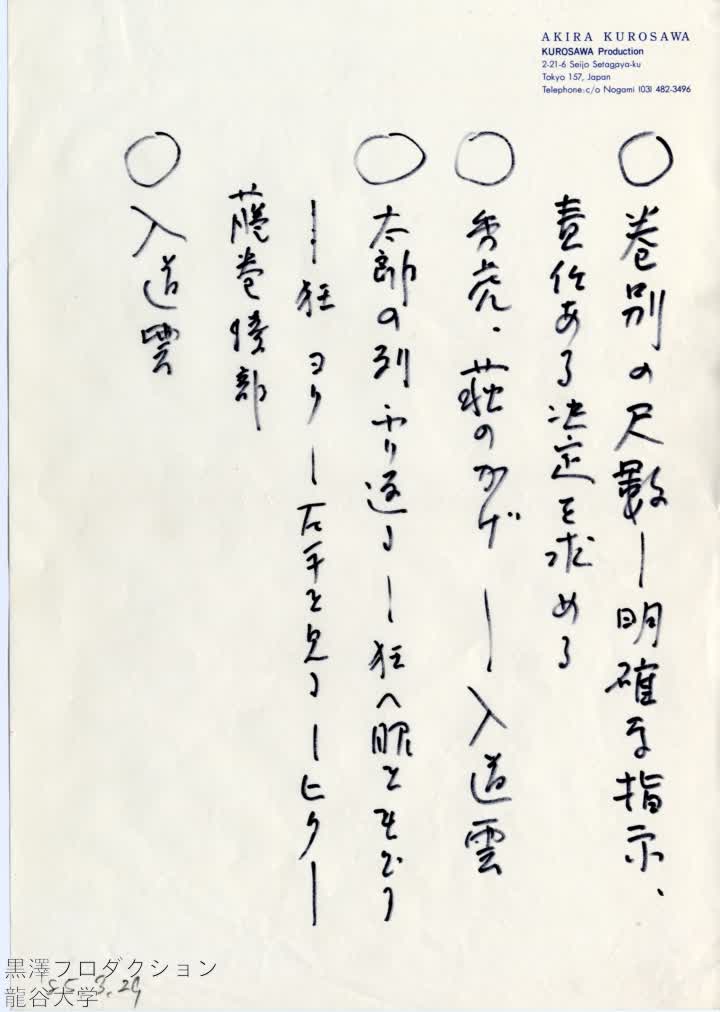 AKIRA KUROSAWA
KUROSAWA Production
2-21-6 Seijo Setagaya-ku
Tokyo 157, Japan
Telephone:c/o Nogami (03) 482-3496
○ 巻別の尺數ー明確な指示、
責任ある決定を求める
○ 秀虎、蔵のかげー入道雲
○ 太郎の別 ふり返るー狂へ眼を
ー狂 ヨリー右手を見るーヒクー
藤巻 部
○ 入道雲
黒澤プロダクション
龍谷大学